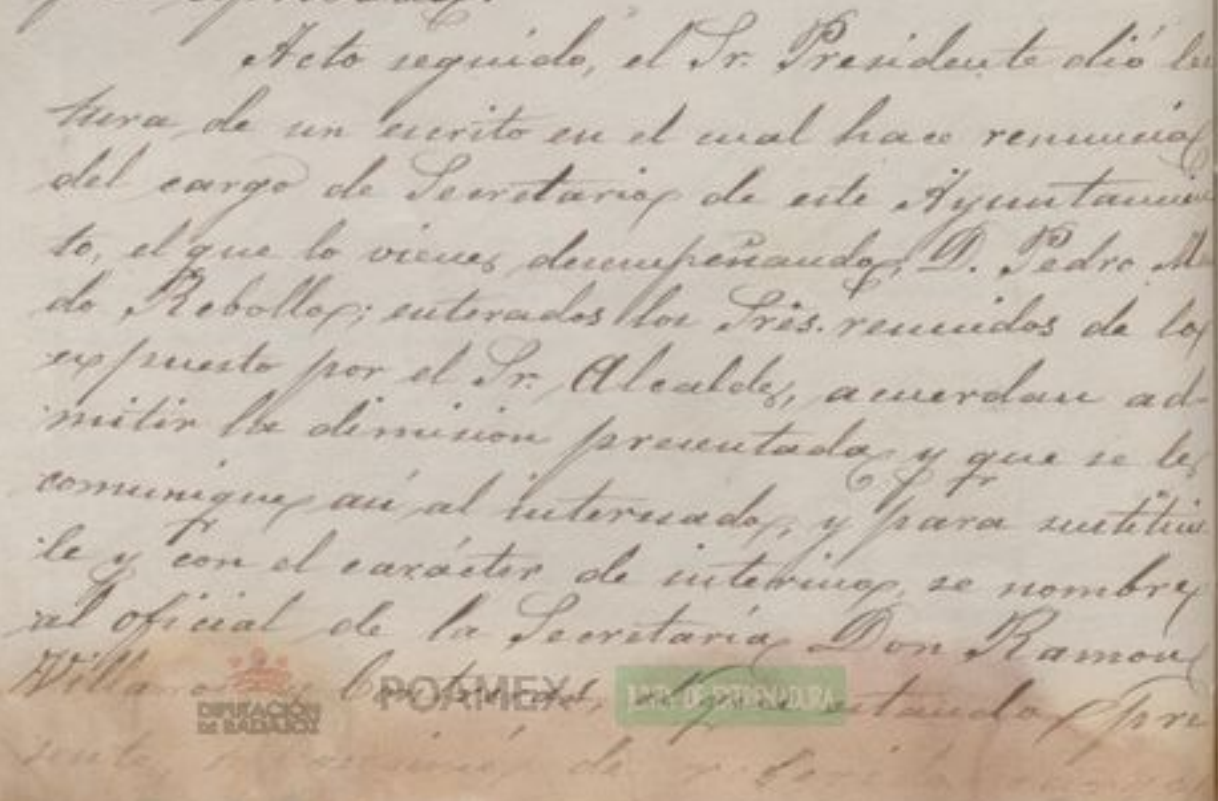 Acto seguido, el Sr. Presidente dió lec
tura de un escrito en el cual hace renuncia
del cargo de Secretario de este Ayuntamien
to, el que lo viene desempeñando, D. Pedro
do Rebollo; enterados los Sres. reunidos de lo
expuesto por el Sr. Alcalde, acuerdan ad-
mitir la dimision presentada y que se le
comunique así al interesado, y para sustituir
le y con el carácter de interino, se nombre
al oficial de la Secretaría Don Ramon
el que estando pre
sente, de
DIPUTACIÓN
DE BADAJOZ
JUNTA DE EXTREMADURA